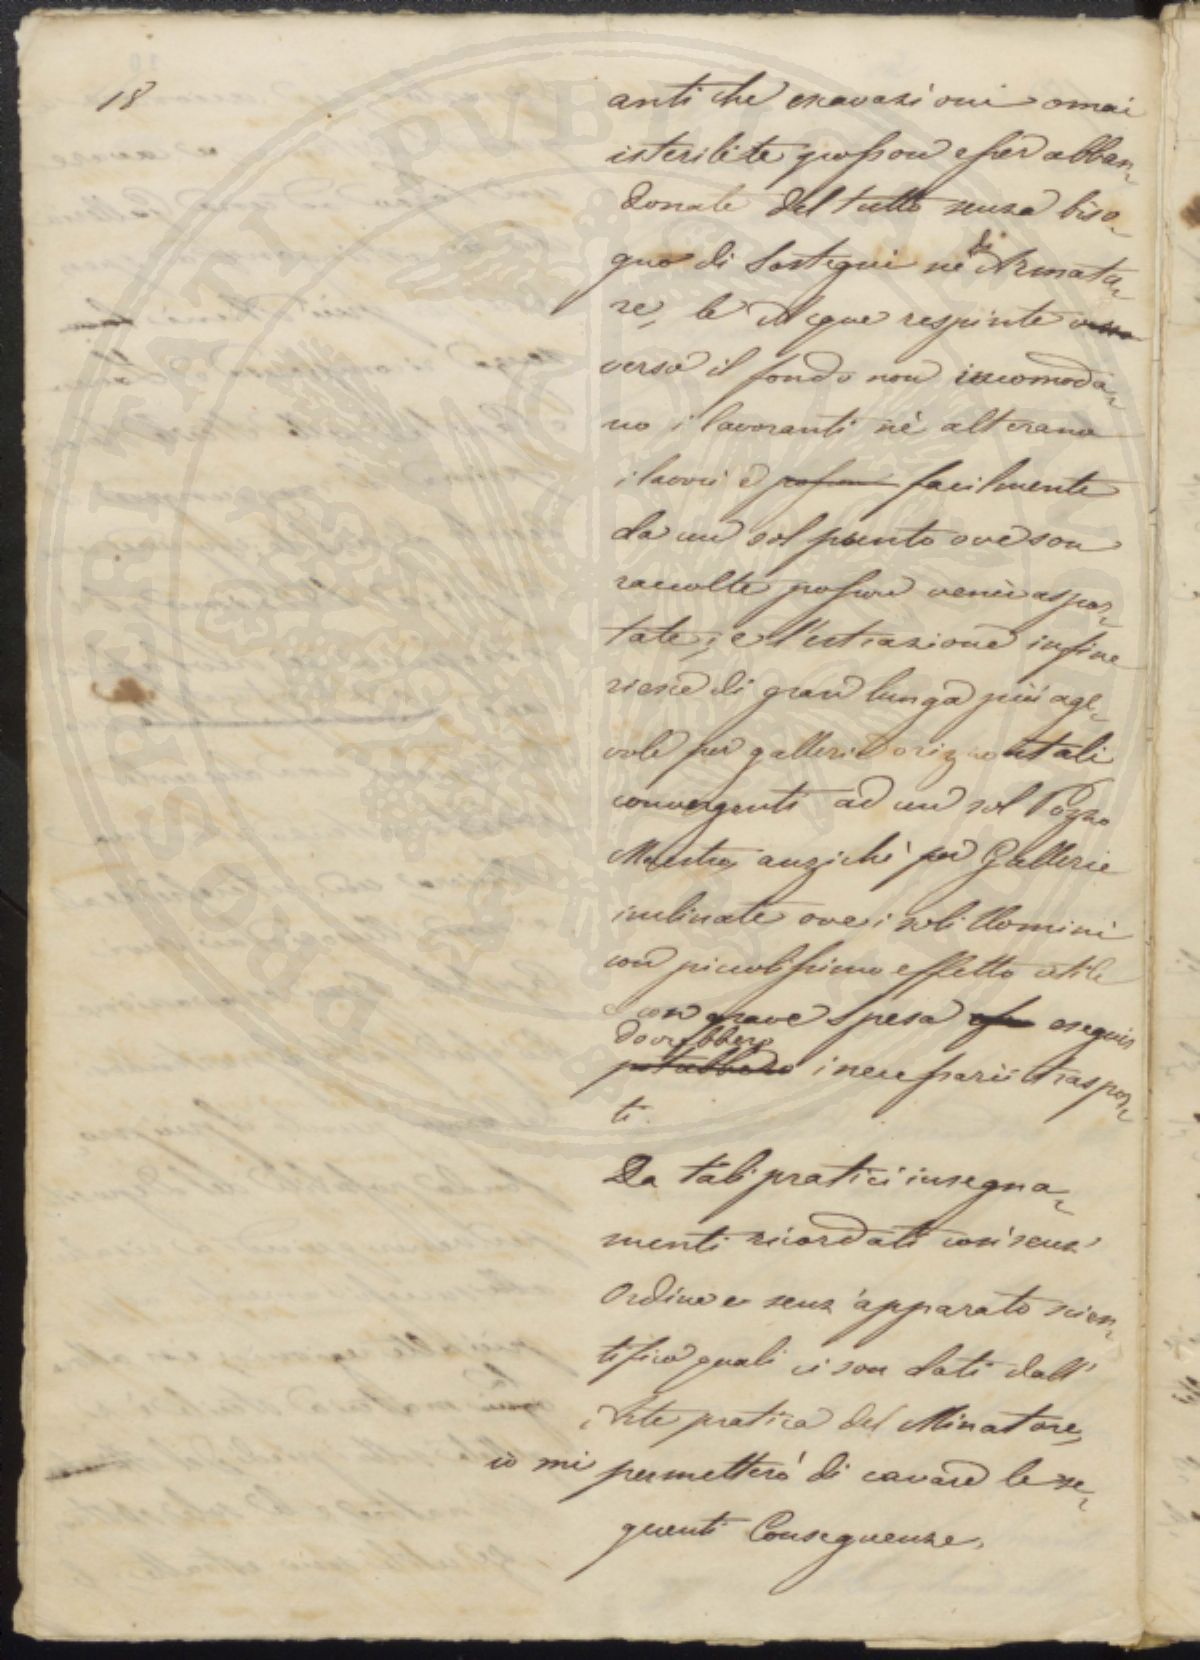 18
antiche escavazioni omai
isterilite posson esser abban-
donate del tutto senza biso-
gno di Sostegni nè di Armatu-
re, le Acque respinte verso
verso il fondo non incomoda-
no i lavoranti nè alterano
i lavori e posson facilmente
da un sol punto ove son
raccolte posson venir aspor-
tate; e l'estrazione infine
riesce di gran lunga più age-
vole per gallerie orizzontali
convergenti ad un sol Pozzo
Maestro, anzichè per Gallerie
inclinate ove i soli Uomini
con piccolissimo effetto utile
e con grave Spesa eseguir
dovrebbero
potrebbero i necessarii traspor-
ti.
Da tali pratici insegna-
menti ricordati così senz'
Ordine e senz'apparato scien-
tifico quali ci son dati dall'
Arte pratica del Minatore,
io mi permetterò di cavare le se-
guenti Conseguenze.